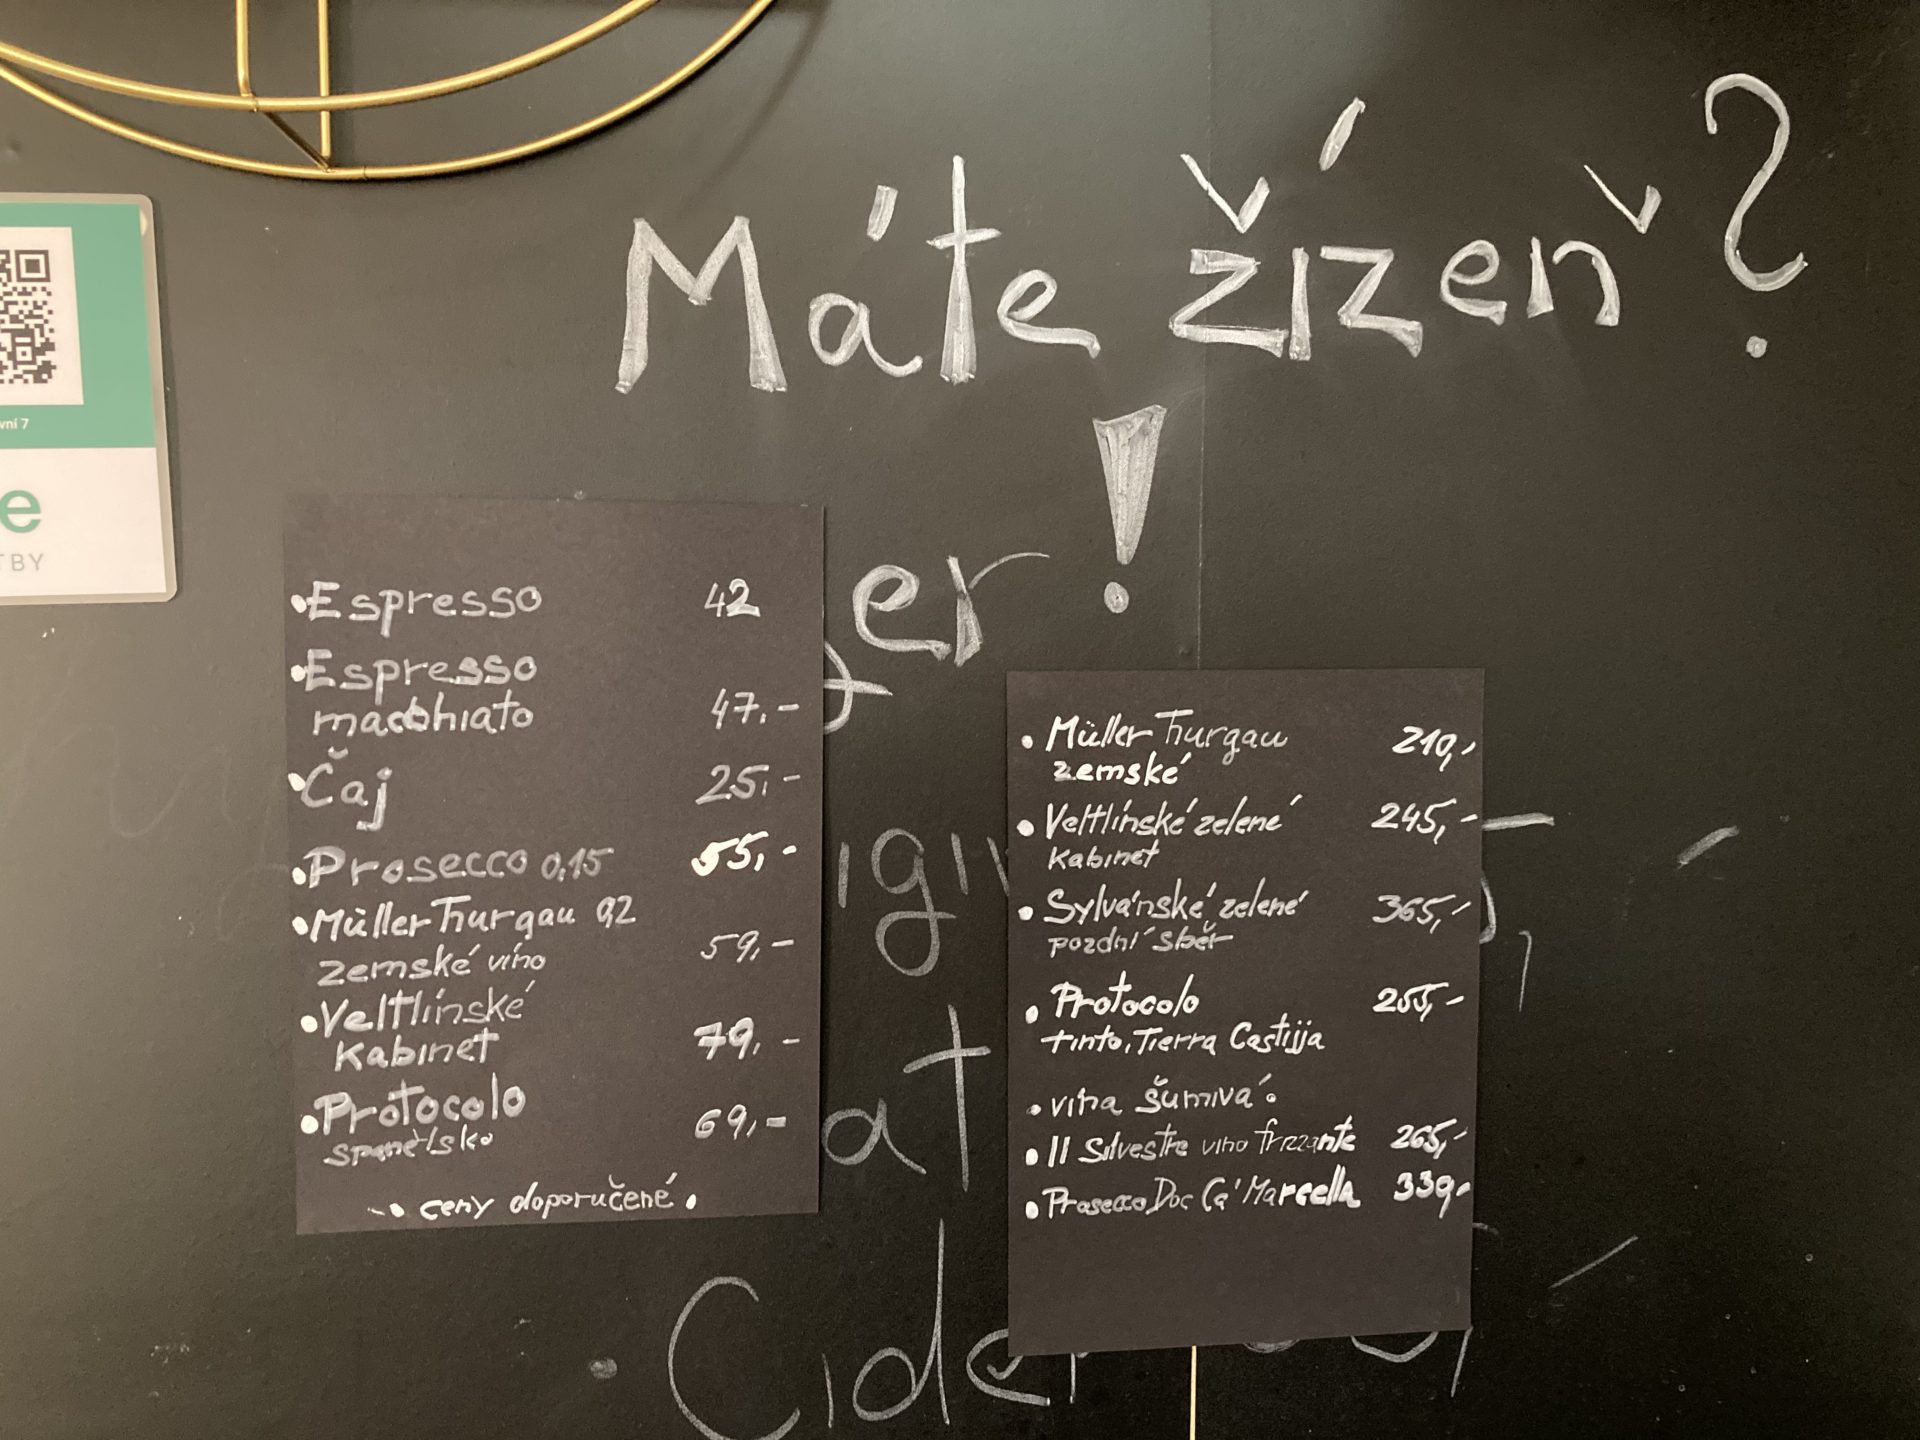 Máte žízeň?
!
er
vní 7
e
TBY
• Espresso 42
• Espresso
macchiato 47.-
• Čaj 25.-
• Prosecco 0,15 55,-
• Müller Thurgau 0,2
zemské víno 59,-
• Veltlínské
Kabinet 79,-
• Protocolo 69,-
španělsko
• ceny doporučené •
• Müller Thurgau 210,-
zemské
• Veltlínské zelené 245,-
Kabinet
• Sylvánské zelené 365,-
pozdní sběr
• Protocolo 255,-
tinto, Tierra Castijja
• vína šumivá:
• Il Silvestre vino frizzante 265,-
• Prosecco Doc Ca' Marcella 339,-
at
• Cider